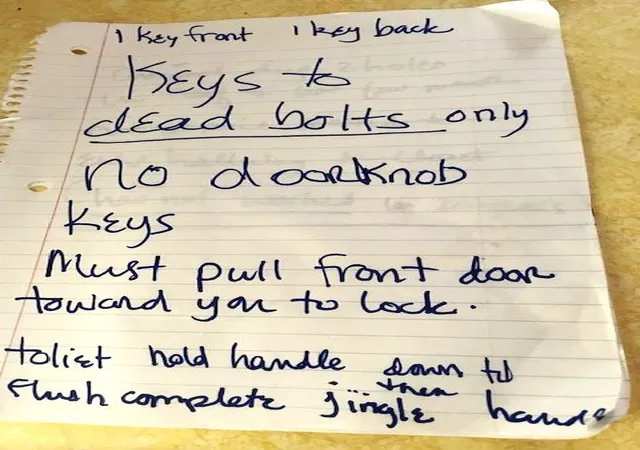 1 key front 1 key back
Keys to
dead bolts only
no doorknob
keys
Must pull front door
toward you to lock.
toliet hold handle down to
flush complete ... then jingle handle